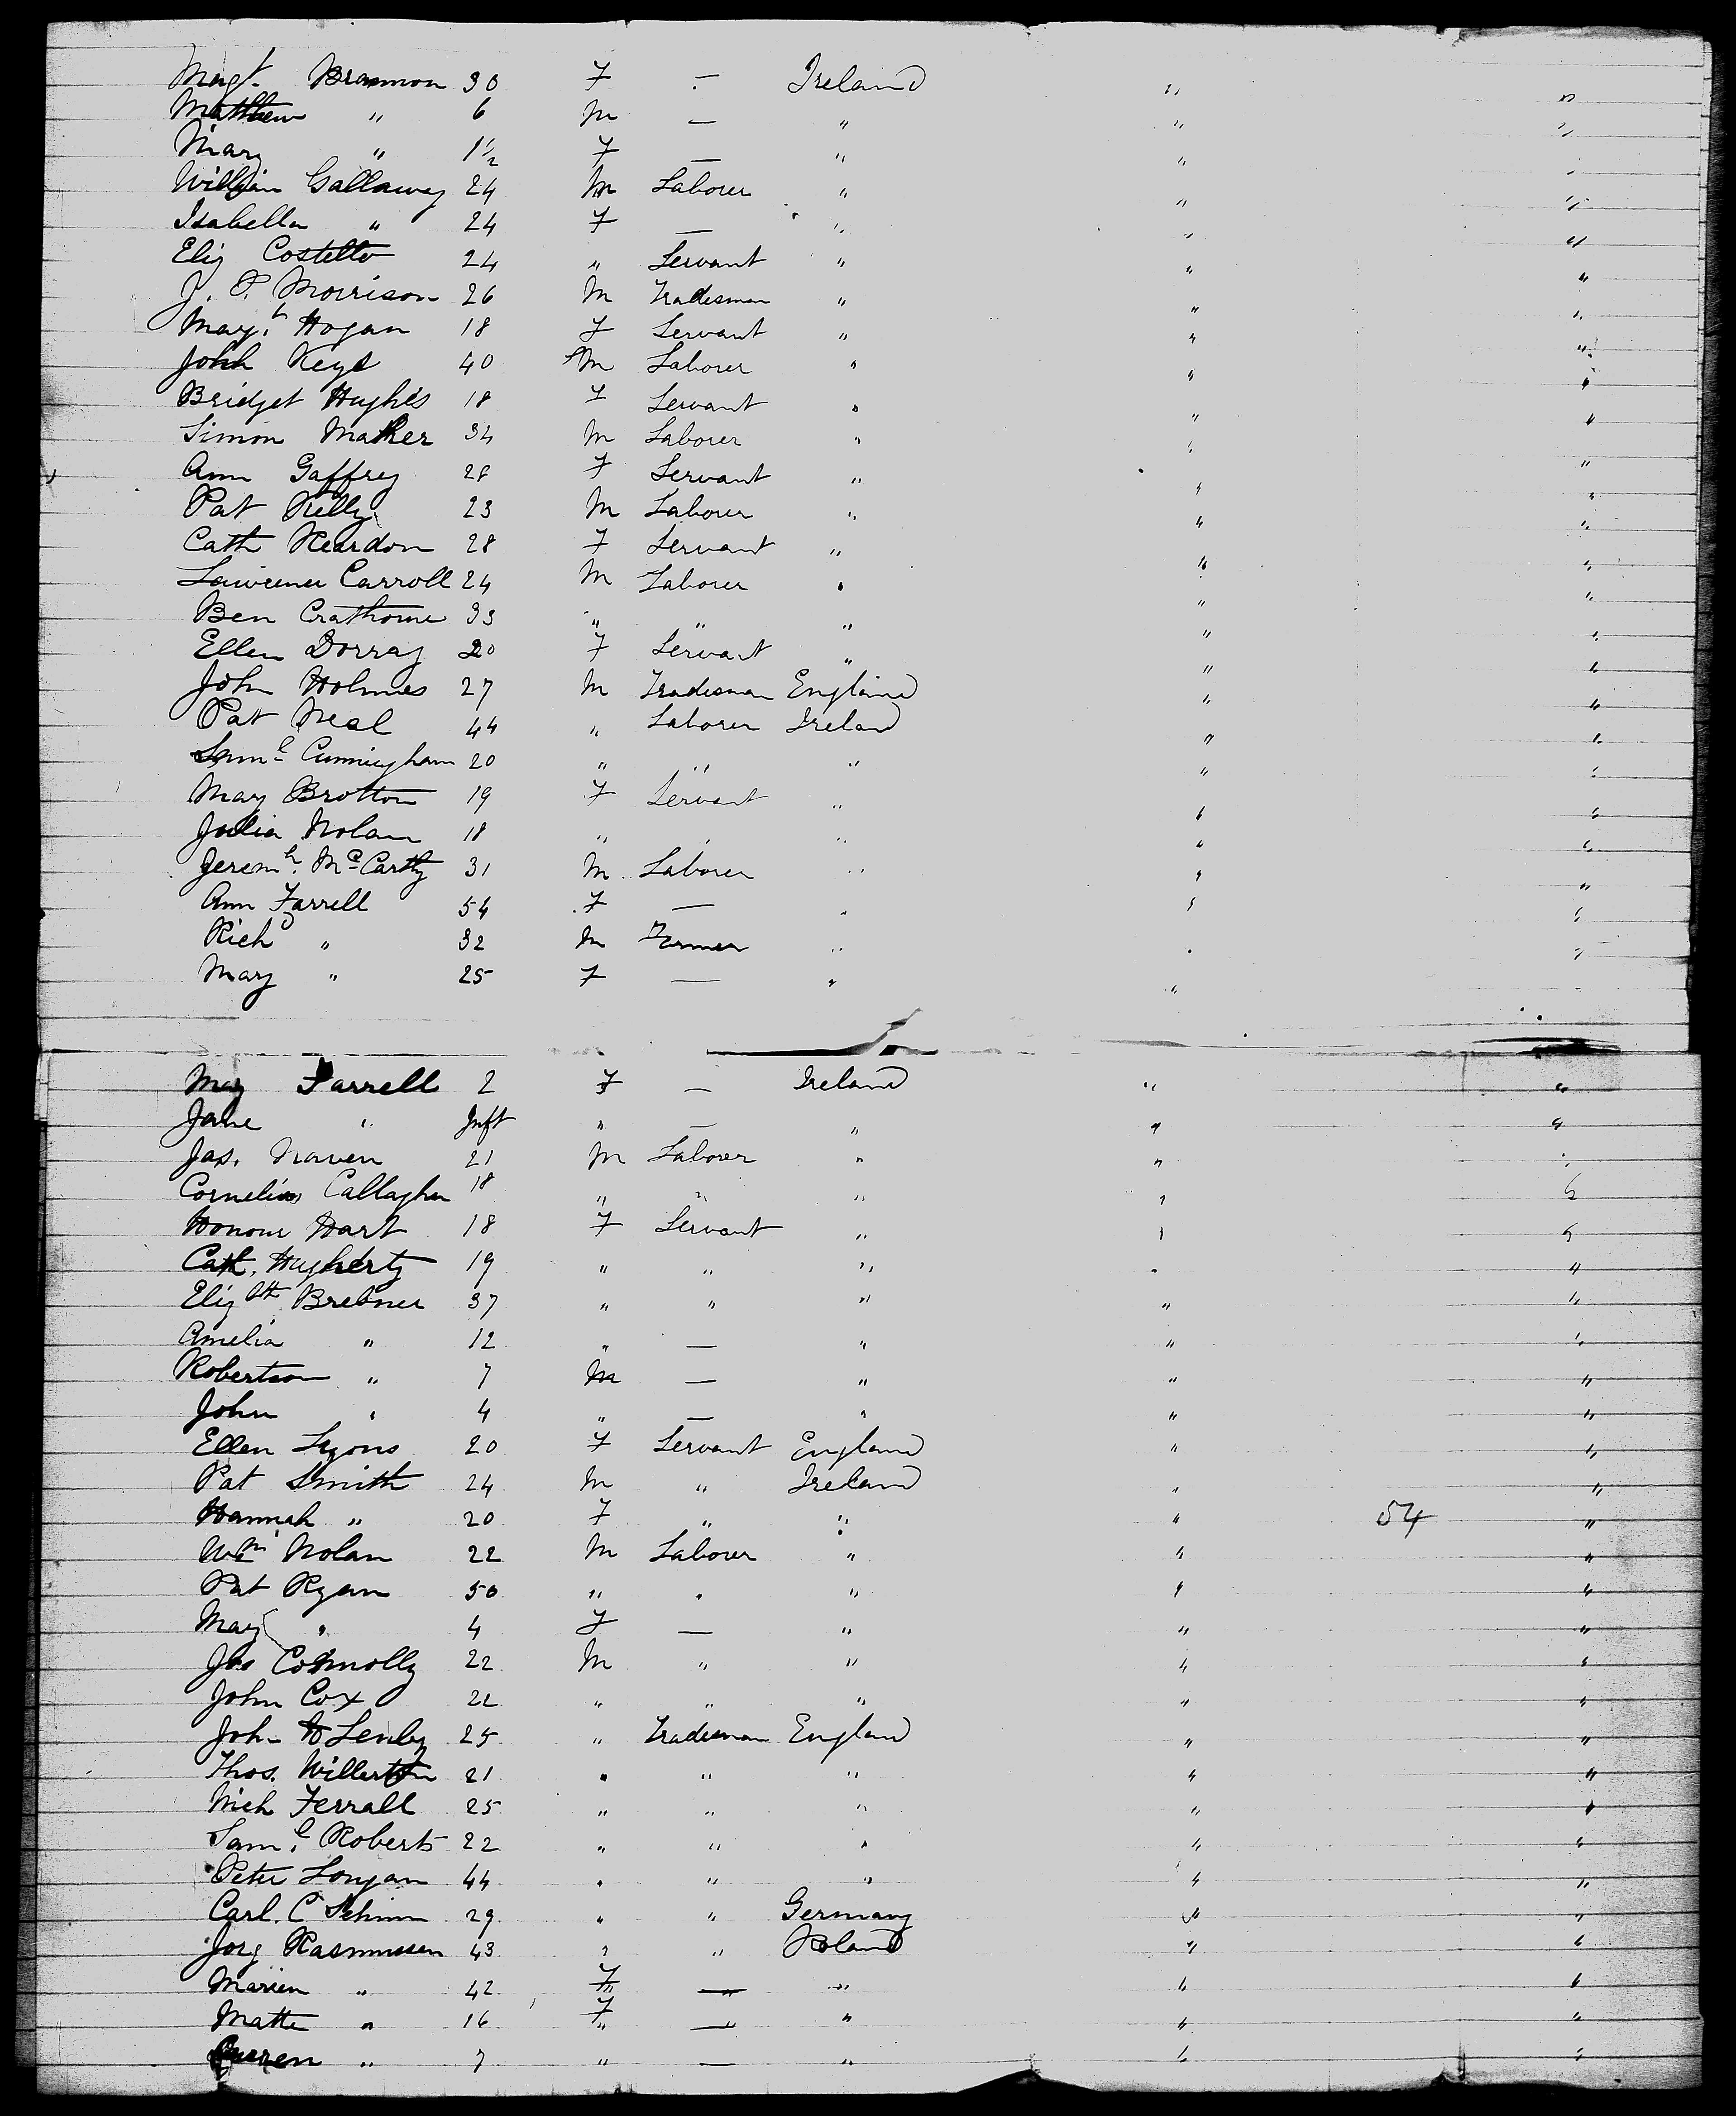 Magt. Brannon 30 F — Ireland " "
Matthew " 6 M — " " "
Mary " 1½ F — " " "
William Gallaway 24 M Laborer " " "
Isabella " 24 F — " " "
Eliz Costello 24 " Servant " " "
J. P. Morrison 26 M Tradesman " " "
Margt. Hogan 18 F Servant " " "
John Keys 40 M Laborer " " "
Bridget Hughes 18 F Servant " " "
Simon Maher 34 M Laborer " " "
Ann Gaffrey 28 F Servant " " "
Pat Kelly 23 M Laborer " " "
Cath Reardon 28 F Servant " " "
Lawrence Carroll 24 M Laborer " " "
Ben Crathorne 33 " " " " "
Ellen Dorray 20 F Servant " " "
John Holmes 27 M Tradesman England " "
Pat Neal 44 " Laborer Ireland " "
Saml Cunningham 20 " " " " "
Mary Brotton 19 F Servant " " "
Julia Nolan 18 " " " " "
Jeremh. McCarthy 31 M Laborer " " "
Ann Farrell 54 F — " " "
Richd " 32 M Farmer " " "
Mary " 25 F — " " "
May Farrell 2 F — Ireland " "
Jane " Inft " — " " "
Jas. Naven 21 M Laborer " " "
Cornelius Callaghan 18 " " " " "
Honour Hart 18 F Servant " " "
Cath. Hugherty 19 " " " " "
Elizth Brebner 37 " " " " "
Amelia " 12 " — " " "
Robertson " 7 M — " " "
John " 4 " — " " "
Ellen Lyons 20 F Servant England " "
Pat Smith 24 M " Ireland " "
Hannah " 20 F " " " 54 "
Wm Nolan 22 M Laborer " " "
Pat Ryan 50 " " " " "
May " 4 F — " " "
Jas Connolly 22 M " " " "
John Cox 22 " " " " "
John H Lenby 25 " Tradesman England " "
Thos. Willerton 21 " " " " "
Nich Ferrall 25 " " " " "
Saml. Roberts 22 " " " " "
Peter Longan 44 " " " " "
Carl. C Schimm 29 " " Germany " "
Jorg Rasmussen 43 " " Poland " "
Marien " 42 F — " " "
Matte " 16 F — " " "
" 7 " — " " "